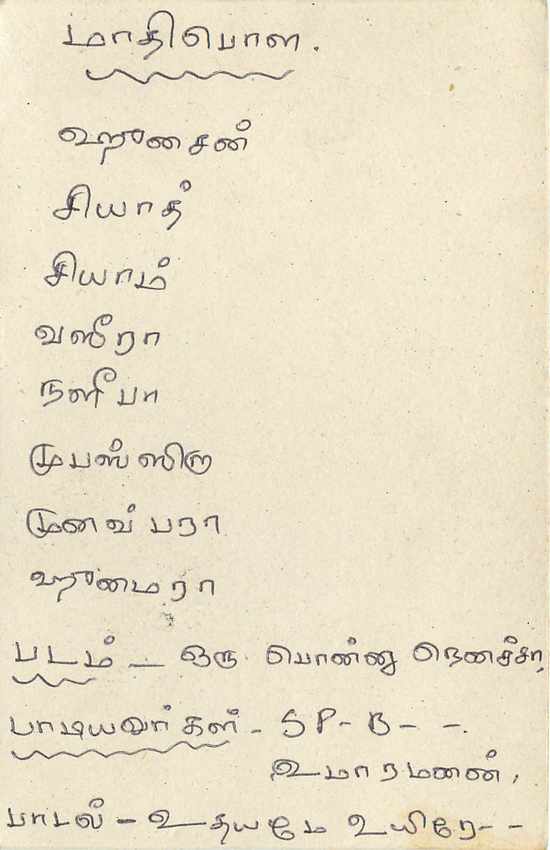 மாதிபொள.
ஹுசைன்
சியாத்
சியாம்
வஸீறா
நளீபா
முபஸ்ஸிரு
முனவ்பரா
ஹுமைரா
படம் - ஒரு பொண்ணு நெனச்சா,
பாடியவர்கள் - SP - B - -.
உமாரமணன்,
பாடல் - உதயமே உயிரே - -